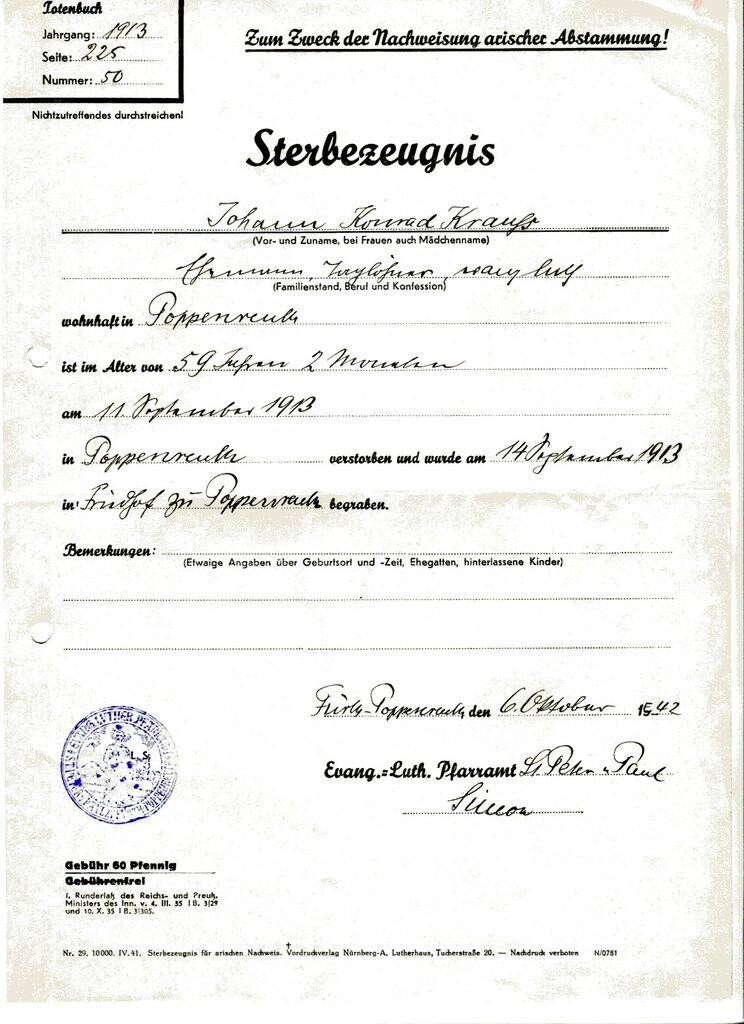 Totenbuch
Jahrgang: 1913
Seite: 225
Nummer: 50
Zum Zweck der Nachweisung arischer Abstammung!
Nichtzutreffendes durchstreichen!
Sterbezeugnis
Johann Konrad Krauß
(Vor- und Zuname, bei Frauen auch Mädchenname)
Ehemann, Taglöhner, evang. luth
(Familienstand, Beruf und Konfession)
wohnhaft in Poppenreuth
ist im Alter von 59 Jahren 2 Monaten
am 11. September 1913
in Poppenreuth verstorben und wurde am 14 September 1913
in Friedhof zu Poppenreuth begraben.
Bemerkungen:
(Etwaige Angaben über Geburtsort und -Zeit, Ehegatten, hinterlassene Kinder)
Fürth-Poppenreuth, den 6. Oktober 1942
L.S.
Evang.=Luth. Pfarramt St. Peter u. Paul
Gebühr 60 Pfennig
Gebührenfrei
f. Runderlaß des Reichs- und Preuß.
Ministers des Inn. v. 4. III. 35 I B. 3/29
und 10. X. 35 I B. 3/305.
Nr. 29. 10000. IV. 41. Sterbezeugnis für arischen Nachweis. Vordruckverlag Nürnberg-A, Lutherhaus, Tucherstraße 20. — Nachdruck verboten N/0781